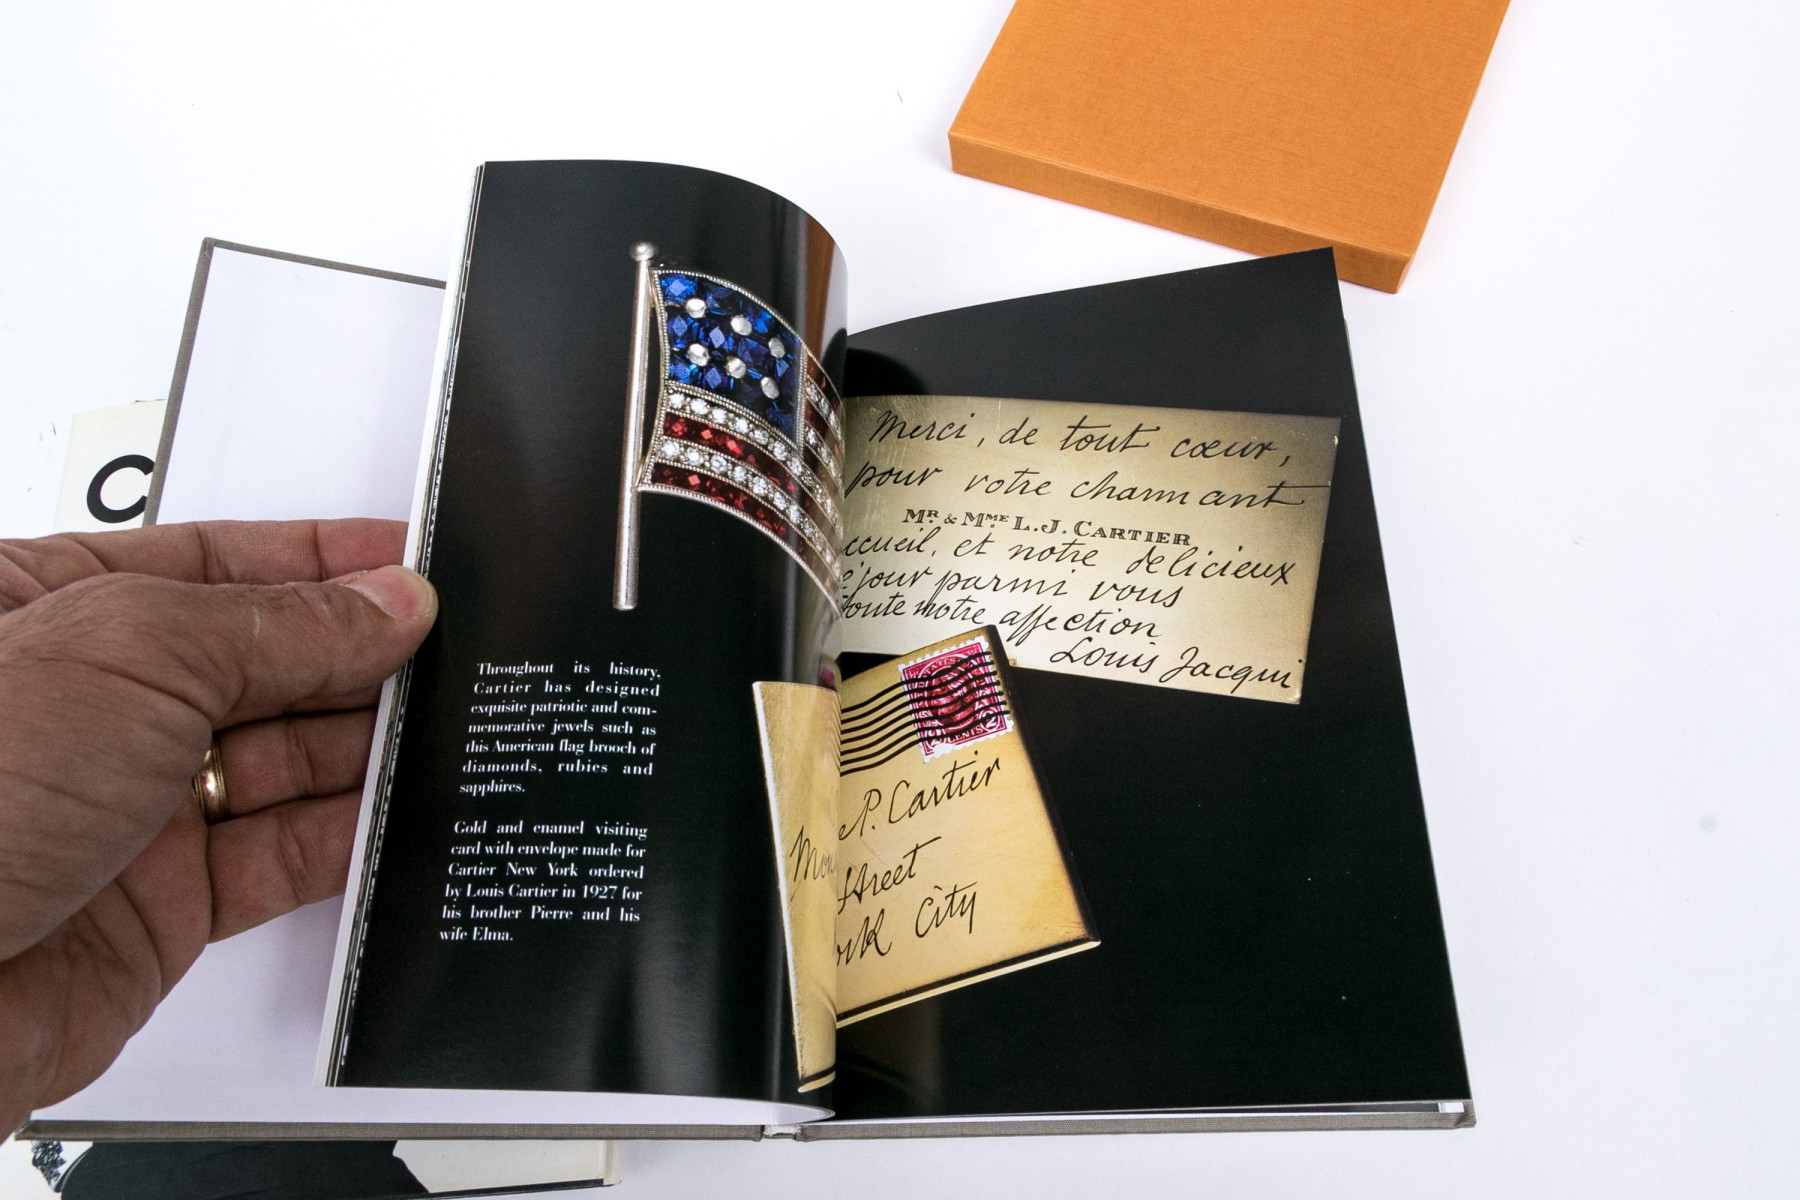 C
Throughout its history,
Cartier has designed
exquisite patriotic and com-
memorative jewels such as
this American flag brooch of
diamonds, rubies and
sapphires.
Gold and enamel visiting
card with envelope made for
Cartier New York ordered
by Louis Cartier in 1927 for
his brother Pierre and his
wife Elma.
Merci, de tout cœur,
pour votre charmant
MR. & MME. L.J. CARTIER
ccueil, et notre delicieux
éjour parmi vous
toute notre affection
Louis Jacqui
STATES
2 CENTS 2
P. Cartier
Street
ork City